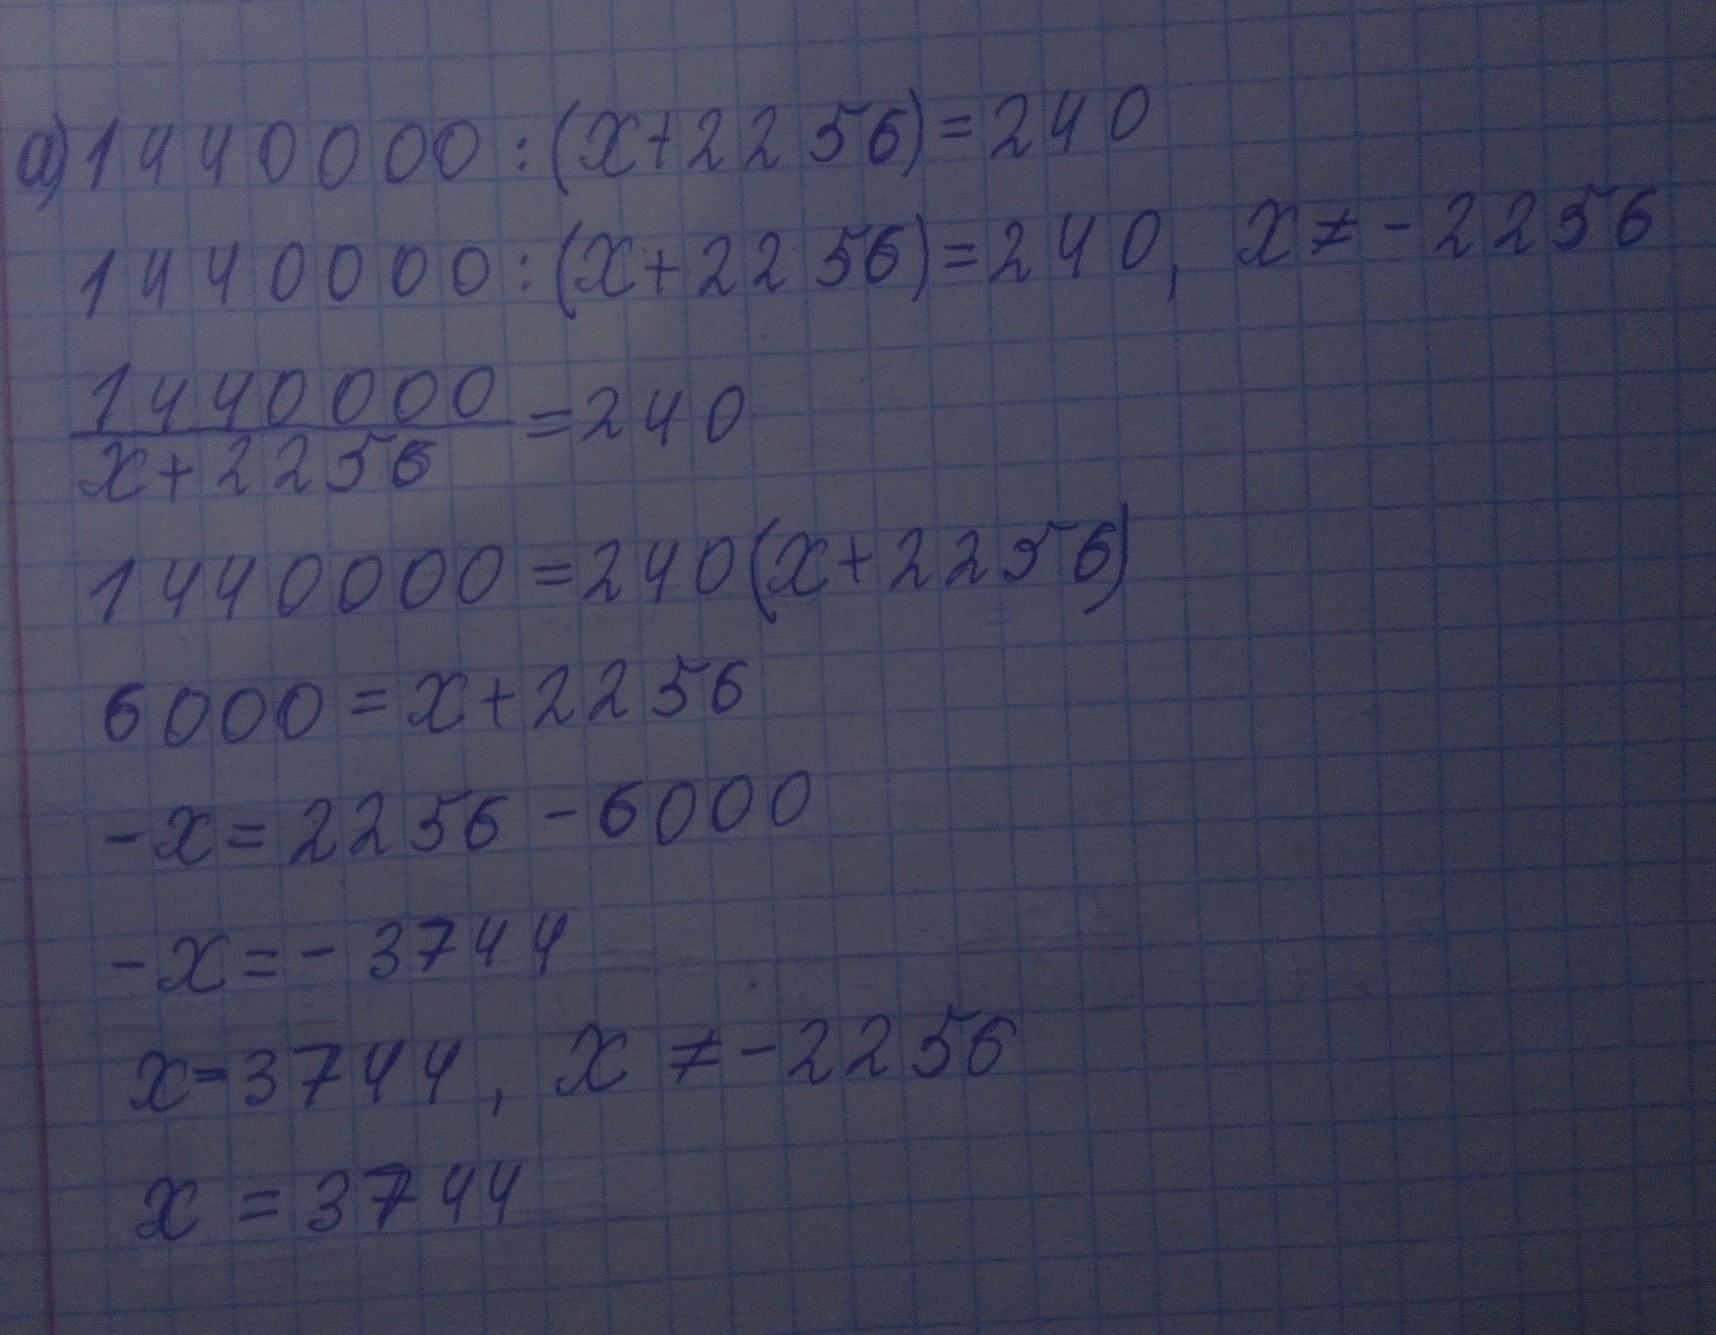 а) 1440000:(x+2256)=240
1440000:(x+2256)=240, x≠-2256
1440000
x+2256
=240
1440000=240(x+2256)
6000=x+2256
-x=2256-6000
-x=-3744
x=3744, x≠-2256
x=3744